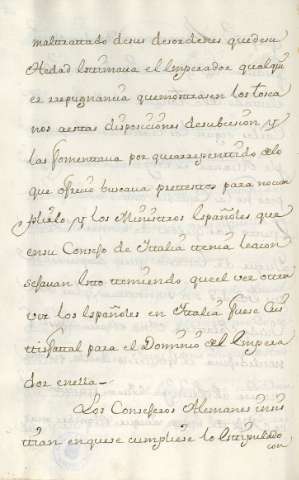 maltrattado desus desordenes quedesu
Hedad Lstimava el Emperador qualqui
er repugnancia quemostrasen los tosca
nos aestas disposiciones desubcesion y
las fomentava por quearrepentido delo
que ofrecio buscava prettestos para nocum
plirlo y los Ministros Españoles que
ensu Consejo de Ittalia ttenia leacon
sejavan Estto ttemiendo queel ver ottra
vez los Españoles en Ittalia fuese
ttisfattal para el Dominio del Empera
dor enella
Los Consejeros Alemanes
ttian enquese cumpliese lo Esttipulado
con